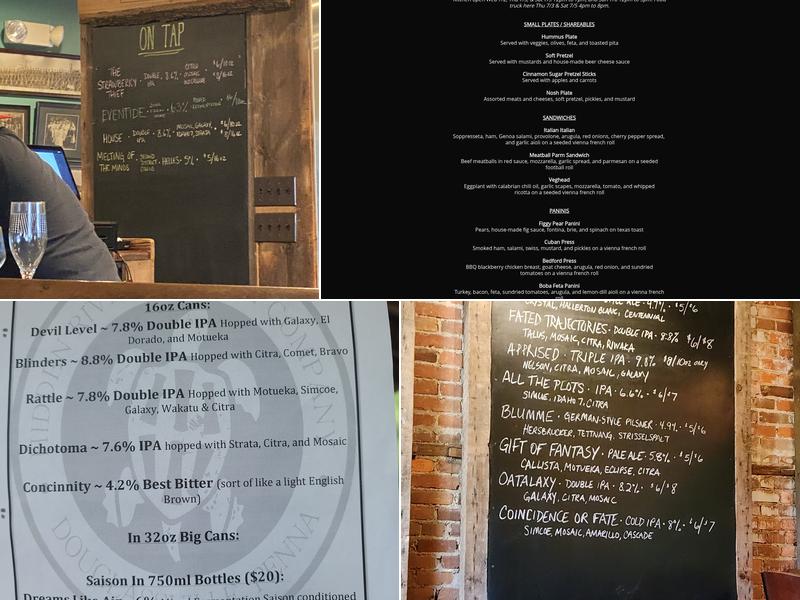 ON TAP
THE STRAWBERRY THIEF · DOUBLE IPA · 8.6% ·
EVENTIDE · 6.3%
HOUSE · DOUBLE IPA · 8.6% · MOSAIC, GALAXY,
MELTING OF THE MINDS · HELLES · 5% · $5/16oz
truck here Thu 7/3 & Sat 7/5 4pm to 8pm.
SMALL PLATES / SHAREABLES
Hummus Plate
Served with veggies, olives, feta, and toasted pita
Soft Pretzel
Served with mustards and house-made beer cheese sauce
Cinnamon Sugar Pretzel Sticks
Served with apples and carrots
Nosh Plate
Assorted meats and cheeses, soft pretzel, pickles, and mustard
SANDWICHES
Italian Italian
Soppresseta, ham, Genoa salami, provolone, arugula, red onions, cherry pepper spread,
and garlic aioli on a seeded vienna french roll
Meatball Parm Sandwich
Beef meatballs in red sauce, mozzarella, garlic spread, and parmesan on a seeded
football roll
Veghead
Eggplant with calabrian chili oil, garlic scapes, mozzarella, tomato, and whipped
ricotta on a seeded vienna french roll
PANINIS
Figgy Pear Panini
Pears, house-made fig sauce, fontina, brie, and spinach on texas toast
Cuban Press
Smoked ham, salami, swiss, mustard, and pickles on a vienna french roll
Bedford Press
BBQ blackberry chicken breast, goat cheese, arugula, red onion, and sundried
tomatoes on a vienna french roll
Boba Feta Panini
Turkey, bacon, feta, sundried tomatoes, arugula, and lemon-dill aioli on a vienna french
16oz Cans:
Devil Level ~ 7.8% Double IPA Hopped with Galaxy, El
Dorado, and Motueka
Blinders ~ 8.8% Double IPA Hopped with Citra, Comet, Bravo
Rattle ~ 7.8% Double IPA Hopped with Motueka, Simcoe,
Galaxy, Wakatu & Citra
Dichotoma ~ 7.6% IPA hopped with Strata, Citra, and Mosaic
Concinnity ~ 4.2% Best Bitter (sort of like a light English
Brown)
In 32oz Big Cans:
Saison In 750ml Bottles ($20):
Dreams Like Air ~ 6% Fermentation Saison conditioned
ALE · 4.7% · $5/$6
CRYSTAL, HALLERTON BLANC, CENTENNIAL
FATED TRAJECTORIES · DOUBLE IPA · 8.8% $6/$8
TALUS, MOSAIC, CITRA, RIWAKA
APPRISED · TRIPLE IPA · 9.8% $8/10oz ONLY
NELSON, CITRA, MOSAIC, GALAXY
ALL THE PLOTS · IPA · 6.6% · $6/$7
SIMCOE, IDAHO 7, CITRA
BLUMME · GERMAN-STYLE PILSNER · 4.9% · $5/$6
HERSBRUCKER, TETTNANG, STRISSELSPALT
GIFT OF FANTASY · PALE ALE · 5.8% · $5/$6
CALLISTA, MOTUEKA, ECLIPSE, CITRA
OATALAXY · DOUBLE IPA · 8.2% · $6/$8
GALAXY, CITRA, MOSAIC
COINCIDENCE OR FATE · COLD IPA · 8% · $6/$7
SIMCOE, MOSAIC, AMARILLO, CASCADE